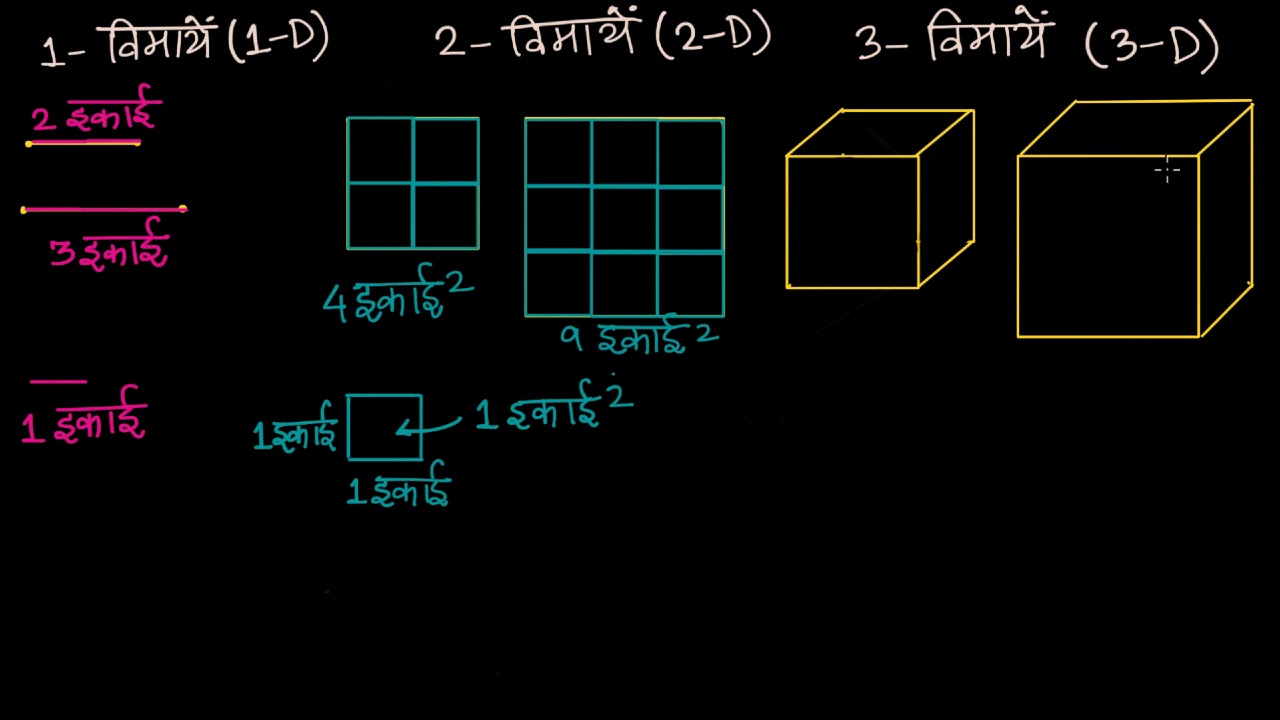 1- विमायें (1-D)
2- विमायें (2-D)
3- विमायें (3-D)
2 इकाई
3 इकाई
4 इकाई²
9 इकाई²
1 इकाई
1 इकाई
1 इकाई²
1 इकाई